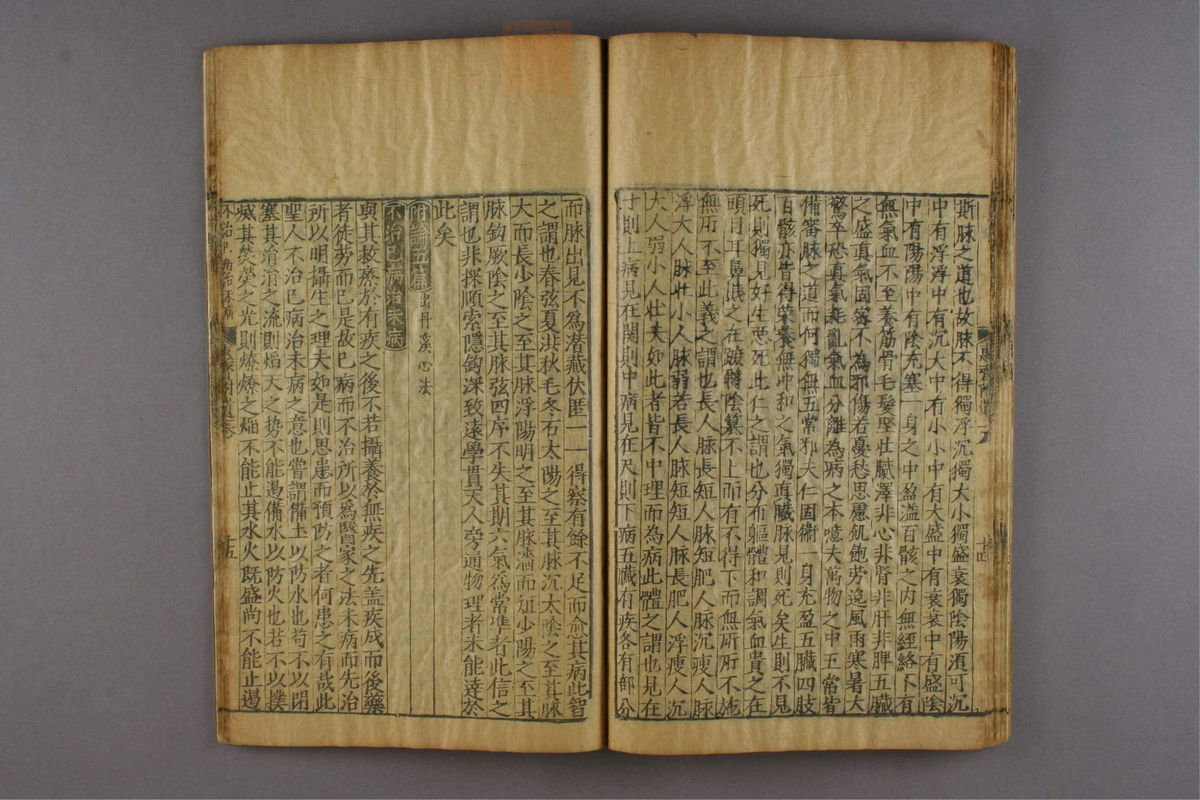 斯脉之道也故脉不得獨浮沉獨大小獨盛衰獨陰陽湏可沉
中有浮浮中有沉大中有小小中有大盛中有衰衰中有盛陰
中有陽陽中有陰充塞一身之中盈溢百骸之内無經絡下有
無氣血不至養筋骨毛髮堅壮臓澤非心非腎非肝非脾五臓
之盛真氣固密不為邪傷若憂愁思慮飢飽劳逸風雨寒暑大
驚卒恐真氣耗亂氣血分離為病之本噫夫萬物之中五常皆
備審脉之道而何獨無五常邪夫仁固衛一身充盈五臓四肢
百骸亦皆得榮養無冲和之氣獨真臓脉見則死矣生則不見
死則獨見好生惡死此仁之謂也分布軀體和調氣血貴之在
頭目耳鼻賤之在蹠臀陰篡不上而有不得下而無所所不施
無所不至此義之謂也長人脉長短人脉短肥人脉沉瘦人脉
浮大人脉壮小人脉弱若長人脉短短人脉長肥人浮瘦人沉
大人弱小人壮夫如此者皆不中理而為病此體之謂也見在
寸則上病見在関則中病見在尺則下病五臓有疾各有部分
而脉出見不為潜藏伏匿一一得察有餘不足而愈其病此智
之謂也春弦夏洪秋毛冬石太陽之至其脉沉太陰之至其脉
大而長少陰之至其脉浮陽明之至其脉濇而短少陽之至其
脉鈎厥陰之至其脉弦四序不失其期六氣為常準者此信之
謂也非探賾索隱鈎深致遠學貫天人旁通物理者未能達於
此矣
附論五篇 出丹溪心法
不治已病治未病
與其救療於有疾之後不若攝養於無疾之先盖疾成而後藥
者徒劳而已是故已病而不治所以為醫家之法未病而先治
所以明攝生之理夫如是則思患而預防之者何患之有哉此
聖人不治已病治未病之意也嘗謂備土以防水也苟不以閉
塞其涓涓之流則滔天之势不能遏備水以防火也若不以撲
滅其熒熒之光則燎燎之焔不能止其水火既盛尚不能止遏
十四
十五